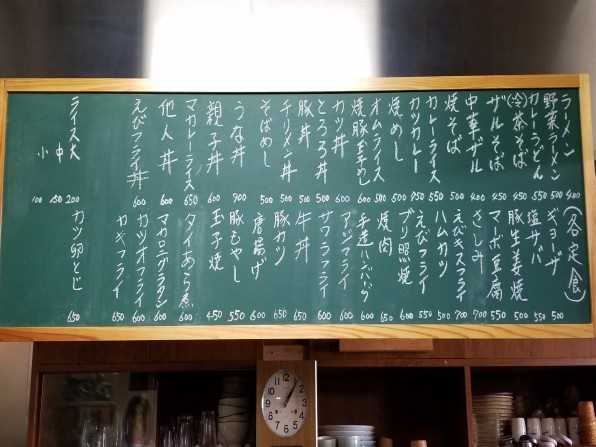 ラーメン 400
野菜ラーメン 500
カレーうどん 550
(冷)茶そば 450
ザルそば 450
中華ザル 400
焼そば 500
カレーライス 550
カツカレー 750
焼めし 500
オムライス 500
焼豚玉子めし 600
カツ丼 600
とろろ丼 500
豚丼 500
チリメン丼 500
そばめし 550
うな丼 900
親子丼 600
マカレーライス 650
他人丼 600
えびフライ丼 600
ライス大 200
中 150
小 100
(各定食)
ギョーザ 500
塩サバ 550
豚生姜焼 500
マーボ豆腐 550
さしみ 700
えびキスフライ 700
ハムカツ 500
えびフライ 550
ブリ照焼 600
焼肉 650
手造ハンバーグ 600
アジフライ 600
サワラフライ 600
牛丼 650
豚カツ 650
唐揚げ 600
豚もやし 550
玉子焼 450
タイあら煮 600
マカロニグラタン 600
カツオフライ 650
カキフライ 650
カツ卵とじ 650